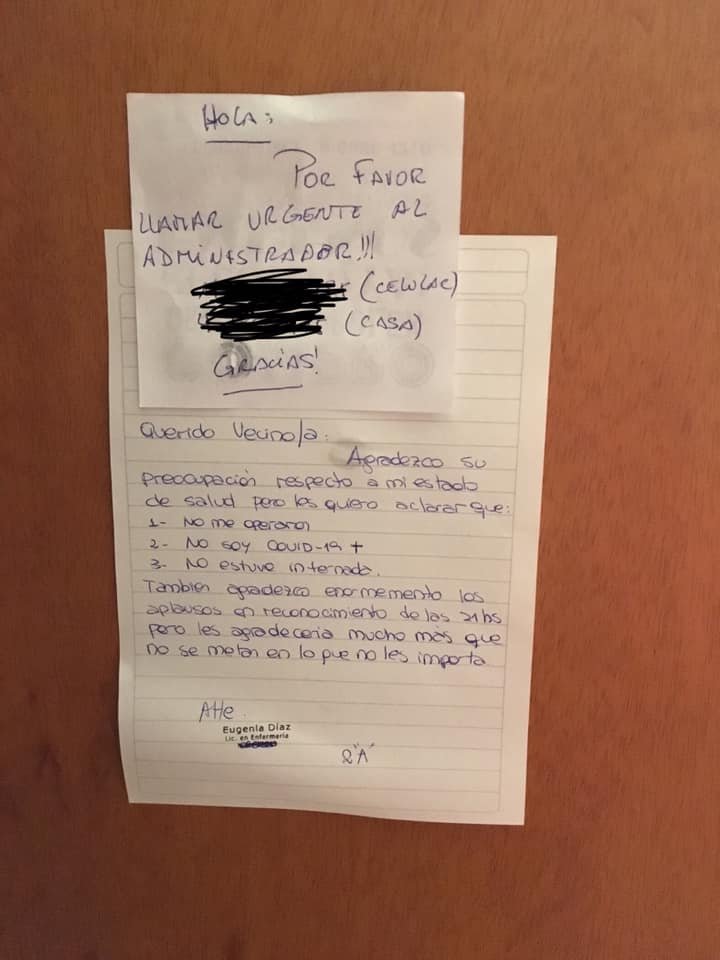 HOLA:
POR FAVOR
LLAMAR URGENTE AL
ADMINISTRADOR!!!
(CELULAR)
(CASA)
GRACIAS!
Querido Vecino/a:
Agradezco su
preocupación respecto a mi estado
de salud pero les quiero aclarar que:
1- No me operaron
2- No soy COVID-19 +
3- No estuve internada.
Tambien agradezco enormemente los
aplausos en reconocimiento de las 21hs
pero les agradeceria mucho más que
no se metan en lo que no les importa
Atte.
Eugenia Díaz
Lic. en Enfermería
2"A"